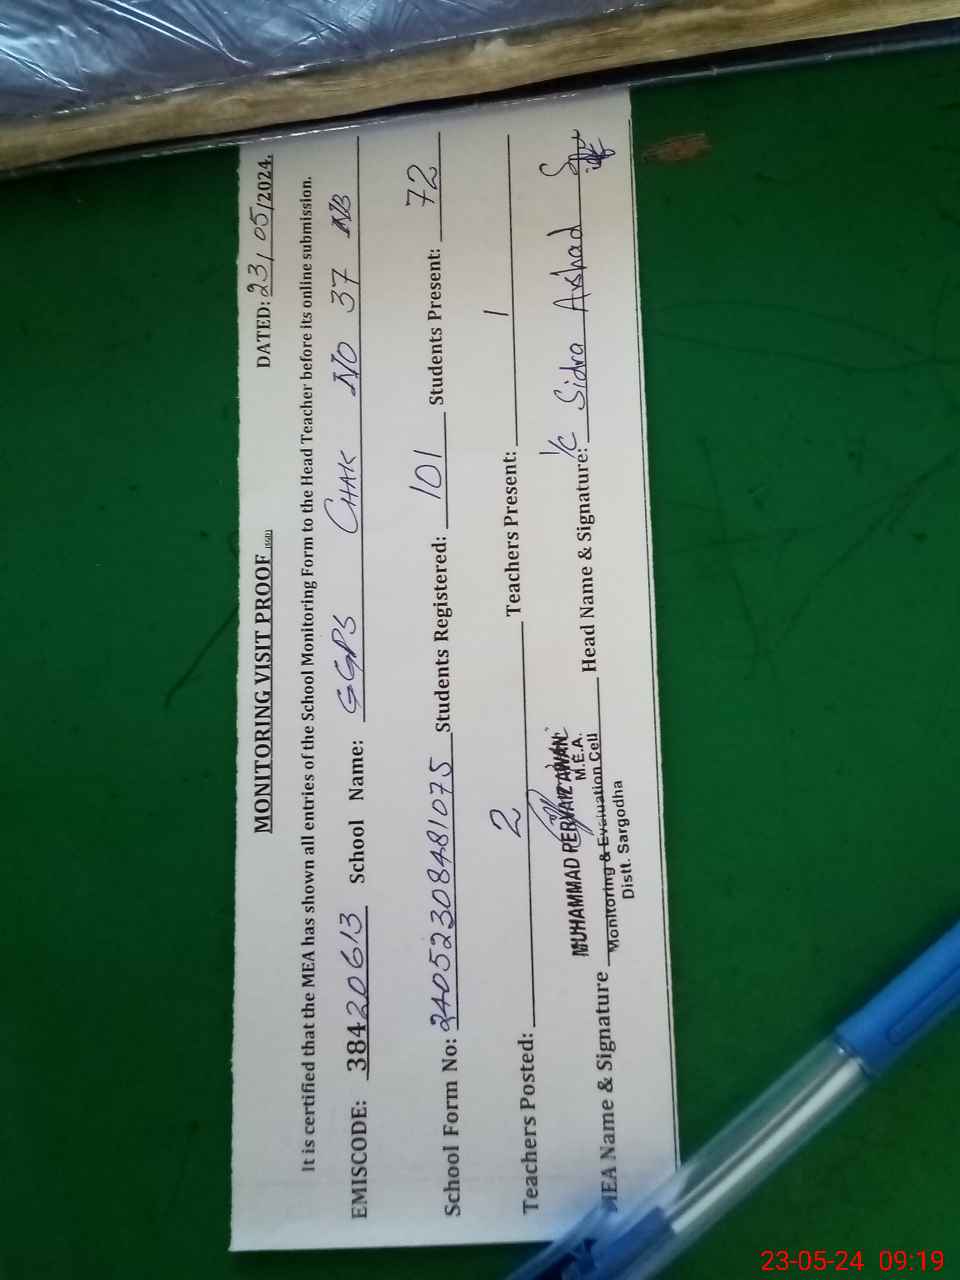 MONITORING VISIT PROOF
DATED: 23/05/2024.
It is certified that the MEA has shown all entries of the School Monitoring Form to the Head Teacher before its online submission.
EMISCODE: 38420613 School Name: GGPS CHAK NO 37 NB
School Form No: 24052308481075 Students Registered: 101 Students Present: 72
Teachers Posted: 2 Teachers Present: 1
MEA Name & Signature Head Name & Signature: I/C Sidra Arshad
MUHAMMAD PERVAIZ AWAN
M.E.A.
Monitoring & Evaluation Cell
Distt. Sargodha
23-05-24 09:19